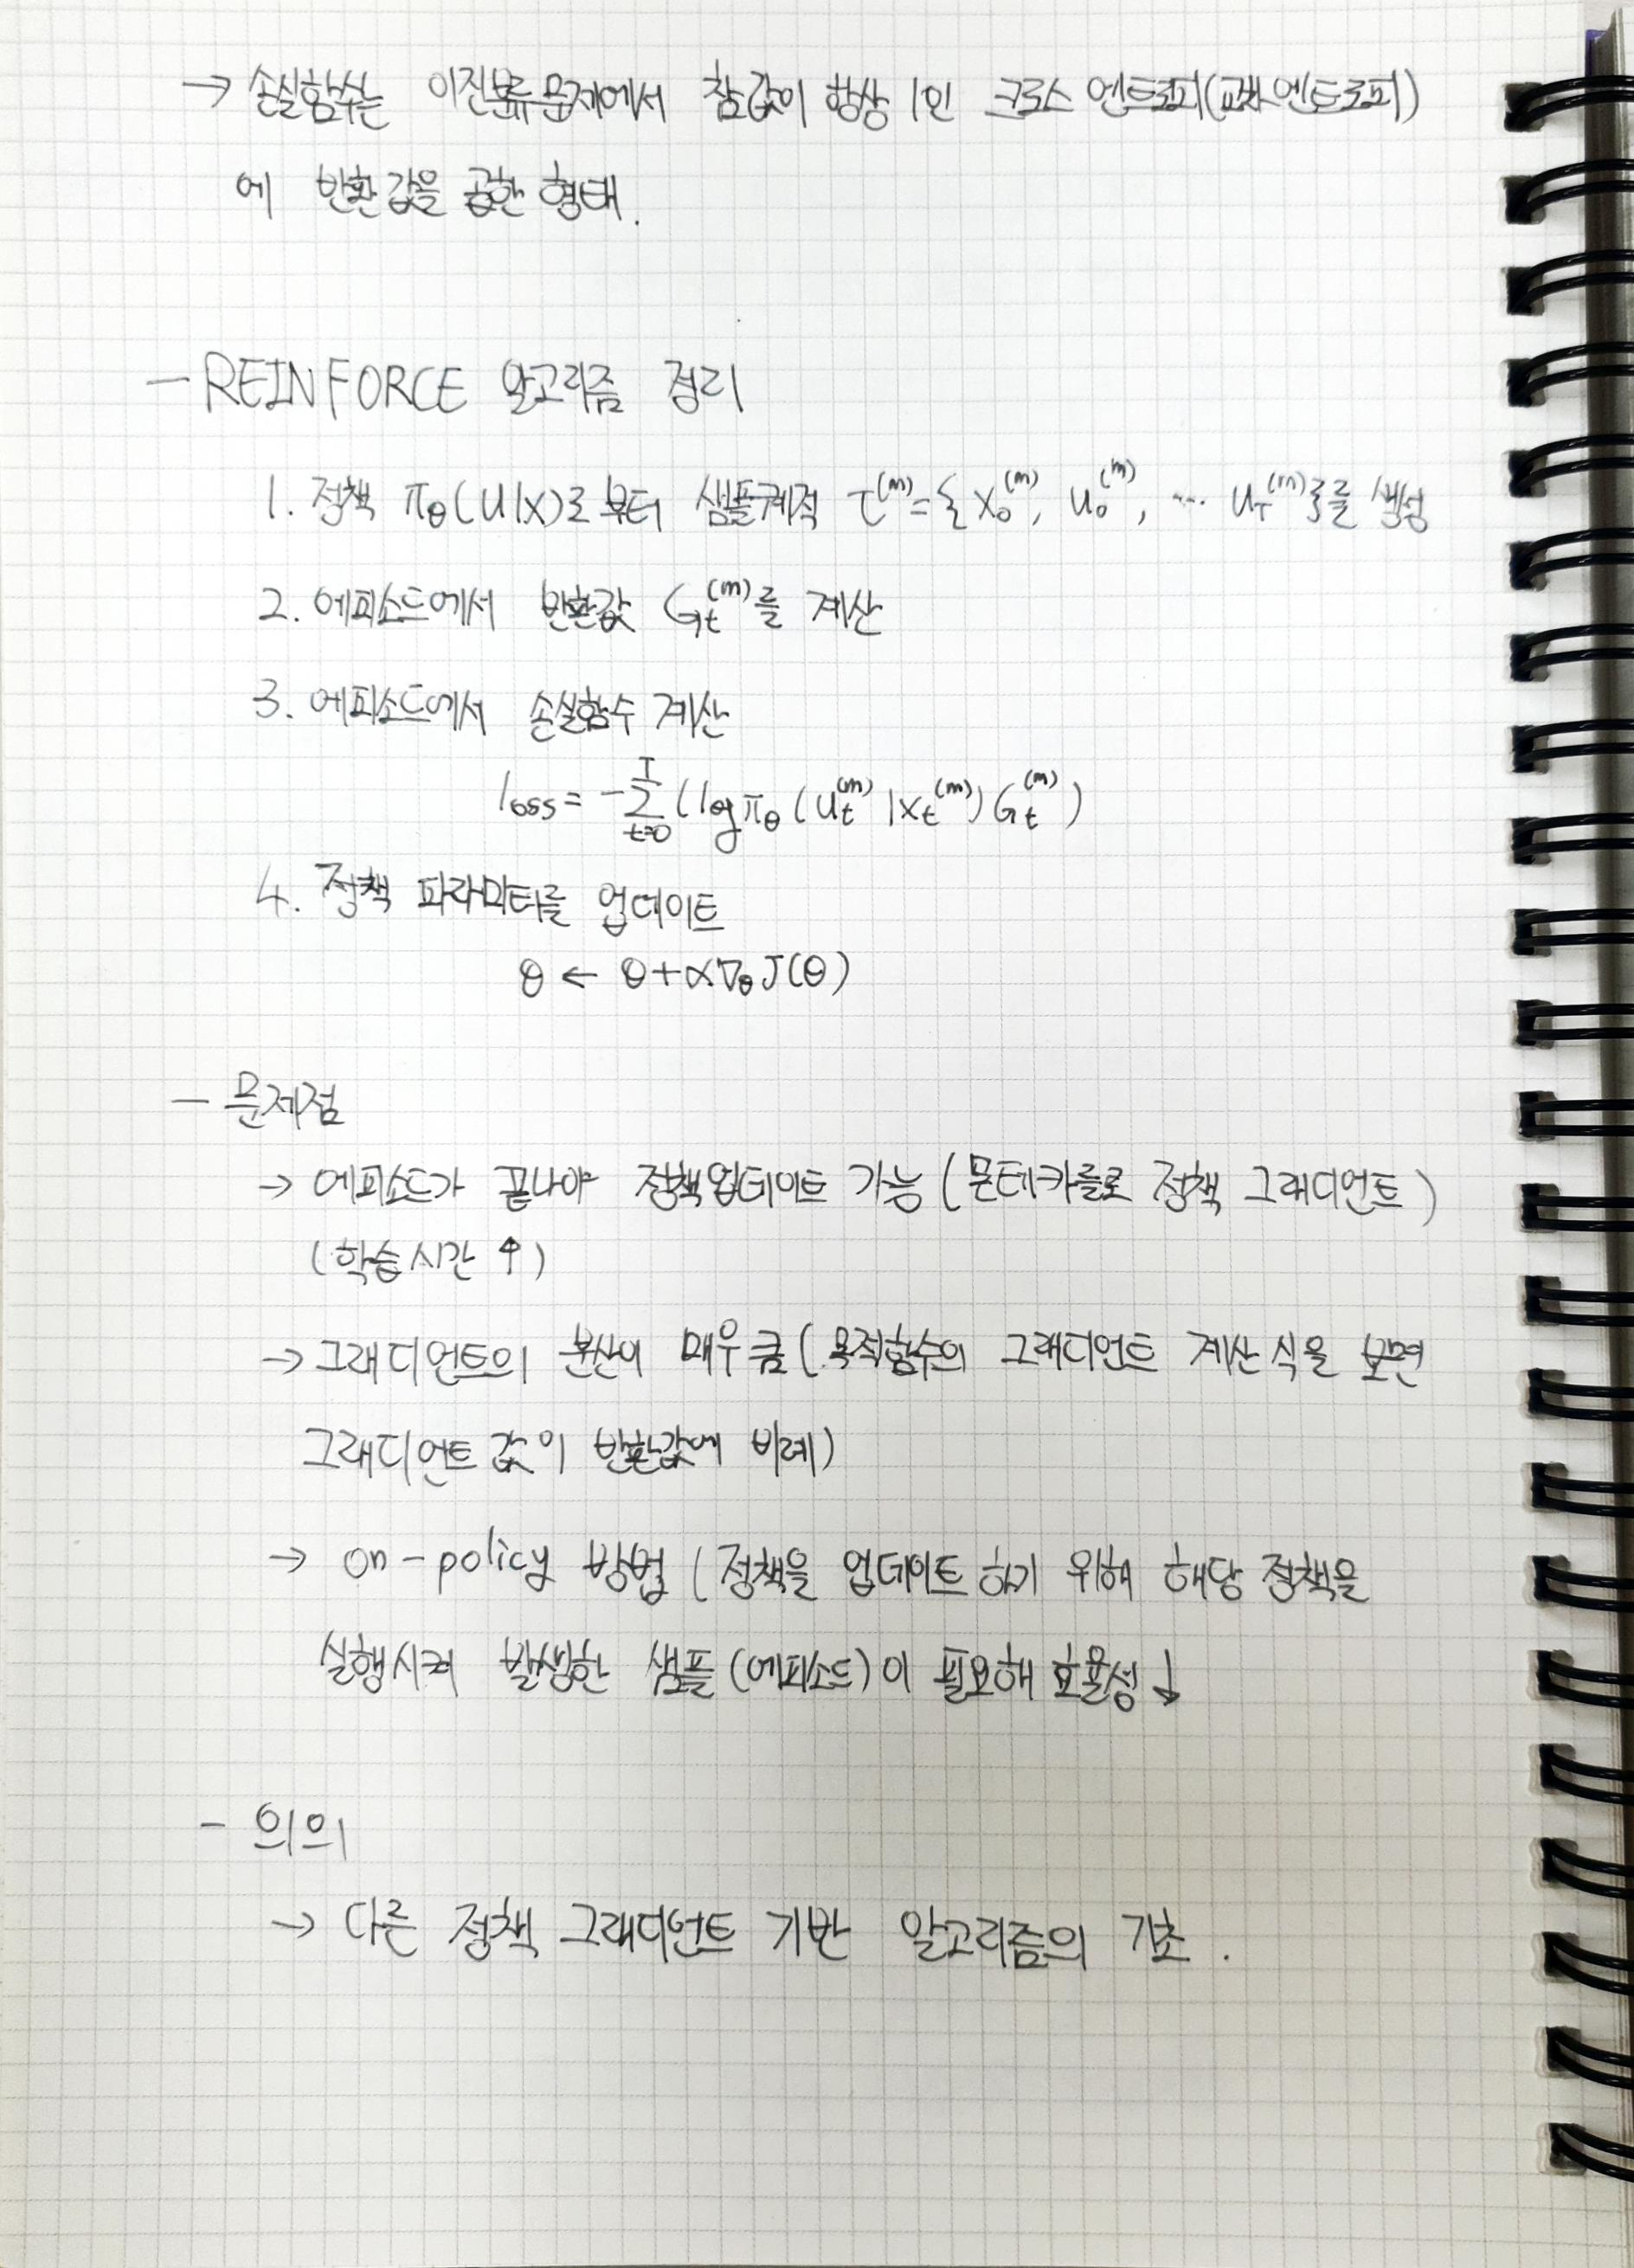 → 손실함수는 이진분류문제에서 참값이 항상 1인 크로스 엔트로피(교차엔트로피)
에 반환값을 곱한 형태.
- REINFORCE 알고리즘 정리
1. 정책 πθ(u|x)로부터 샘플궤적 τ^(m)={x₀^(m), u₀^(m), ... u_T^(m)}를 생성
2. 에피소드에서 반환값 G_t^(m)를 계산
3. 에피소드에서 손실함수 계산
loss = -∑_{t=0}^{T} (log πθ (u_t^(m) |x_t^(m)) G_t^(m))
4. 정책 파라미터를 업데이트
θ ← θ+α∇θ J(θ)
- 문제점
→ 에피소드가 끝나야 정책업데이트 가능 (몬테카를로 정책 그래디언트)
(학습시간 ↑)
→ 그래디언트의 분산이 매우 큼 (목적함수의 그래디언트 계산식을 보면
그래디언트 값이 반환값에 비례)
→ on-policy 방법 (정책을 업데이트 하기 위해 해당 정책을
실행시켜 발생한 샘플(에피소드)이 필요해 효율성 ↓
- 의의
→ 다른 정책 그래디언트 기반 알고리즘의 기초.